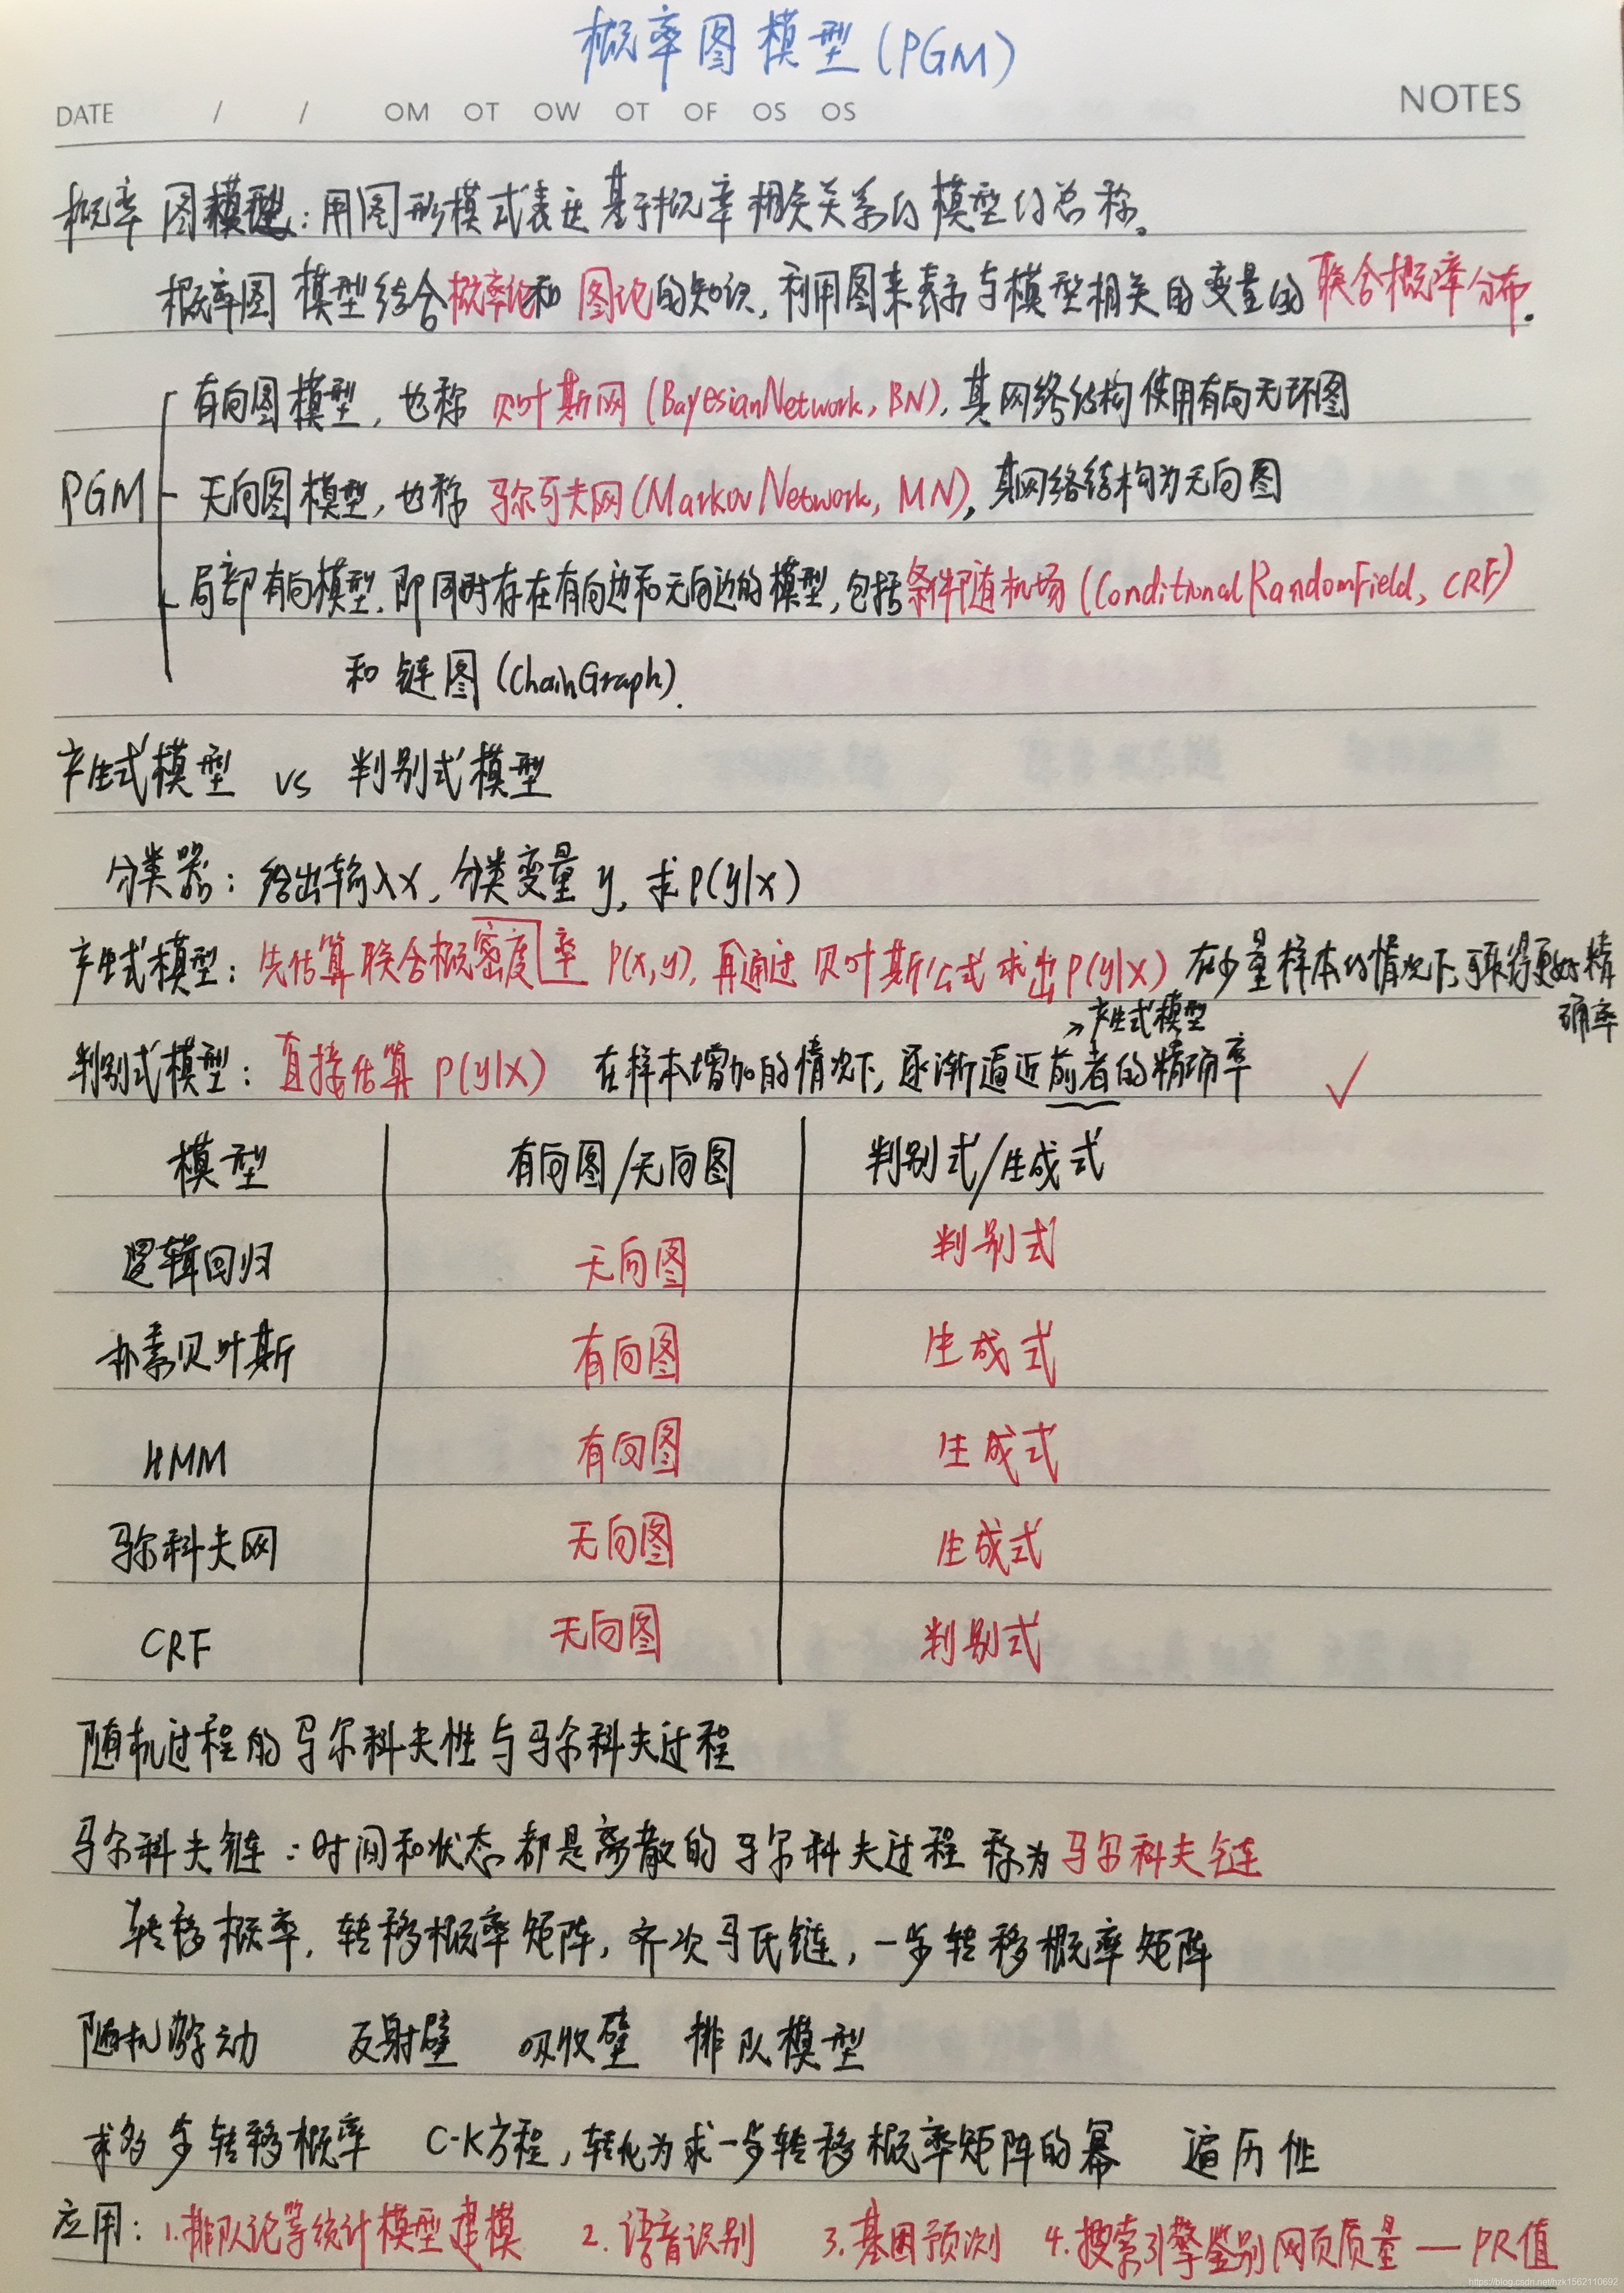 概率图模型(PGM)
DATE / / OM OT OW OT OF OS OS NOTES
概率图模型:用图形模式表达基于概率相关关系的模型的总称。
概率图模型结合概率论和图论的知识,利用图来表示与模型相关的变量的联合概率分布.
有向图模型,也称贝叶斯网(BayesianNetwork, BN),其网络结构使用有向无环图
PGM 无向图模型,也称马尔可夫网(MarkovNetwork, MN),其网络结构为无向图
局部有向模型,即同时存在有向边和无向边的模型,包括条件随机场(ConditionalRandomField, CRF)
和链图(ChainGraph).
产生式模型 vs 判别式模型
分类器:给出输入x,分类变量y,求P(y|x)
产生式模型:先估算联合概密度率 P(x,y),再通过贝叶斯公式求出P(y|x) 在少量样本的情况下,可取得更好精
确率
→产生式模型
判别式模型:直接估算 P(y|x) 在样本增加的情况下,逐渐逼近前者的精确率 ✓
模型 有向图/无向图 判别式/生成式
逻辑回归 无向图 判别式
朴素贝叶斯 有向图 生成式
HMM 有向图 生成式
马尔科夫网 无向图 生成式
CRF 无向图 判别式
随机过程的马尔科夫性与马尔科夫过程
马尔科夫链:时间和状态都是离散的马尔科夫过程称为马尔科夫链
转移概率,转移概率矩阵,齐次马氏链,一步转移概率矩阵
随机游动 反射壁 吸收壁 排队模型
求多步转移概率 C-K方程,转化为求一步转移概率矩阵的幂 遍历性
应用:1.排队论等统计模型建模 2.语音识别 3.基因预测 4.搜索引擎鉴别网页质量—PR值
https://blog.csdn.net/hzk1562110692